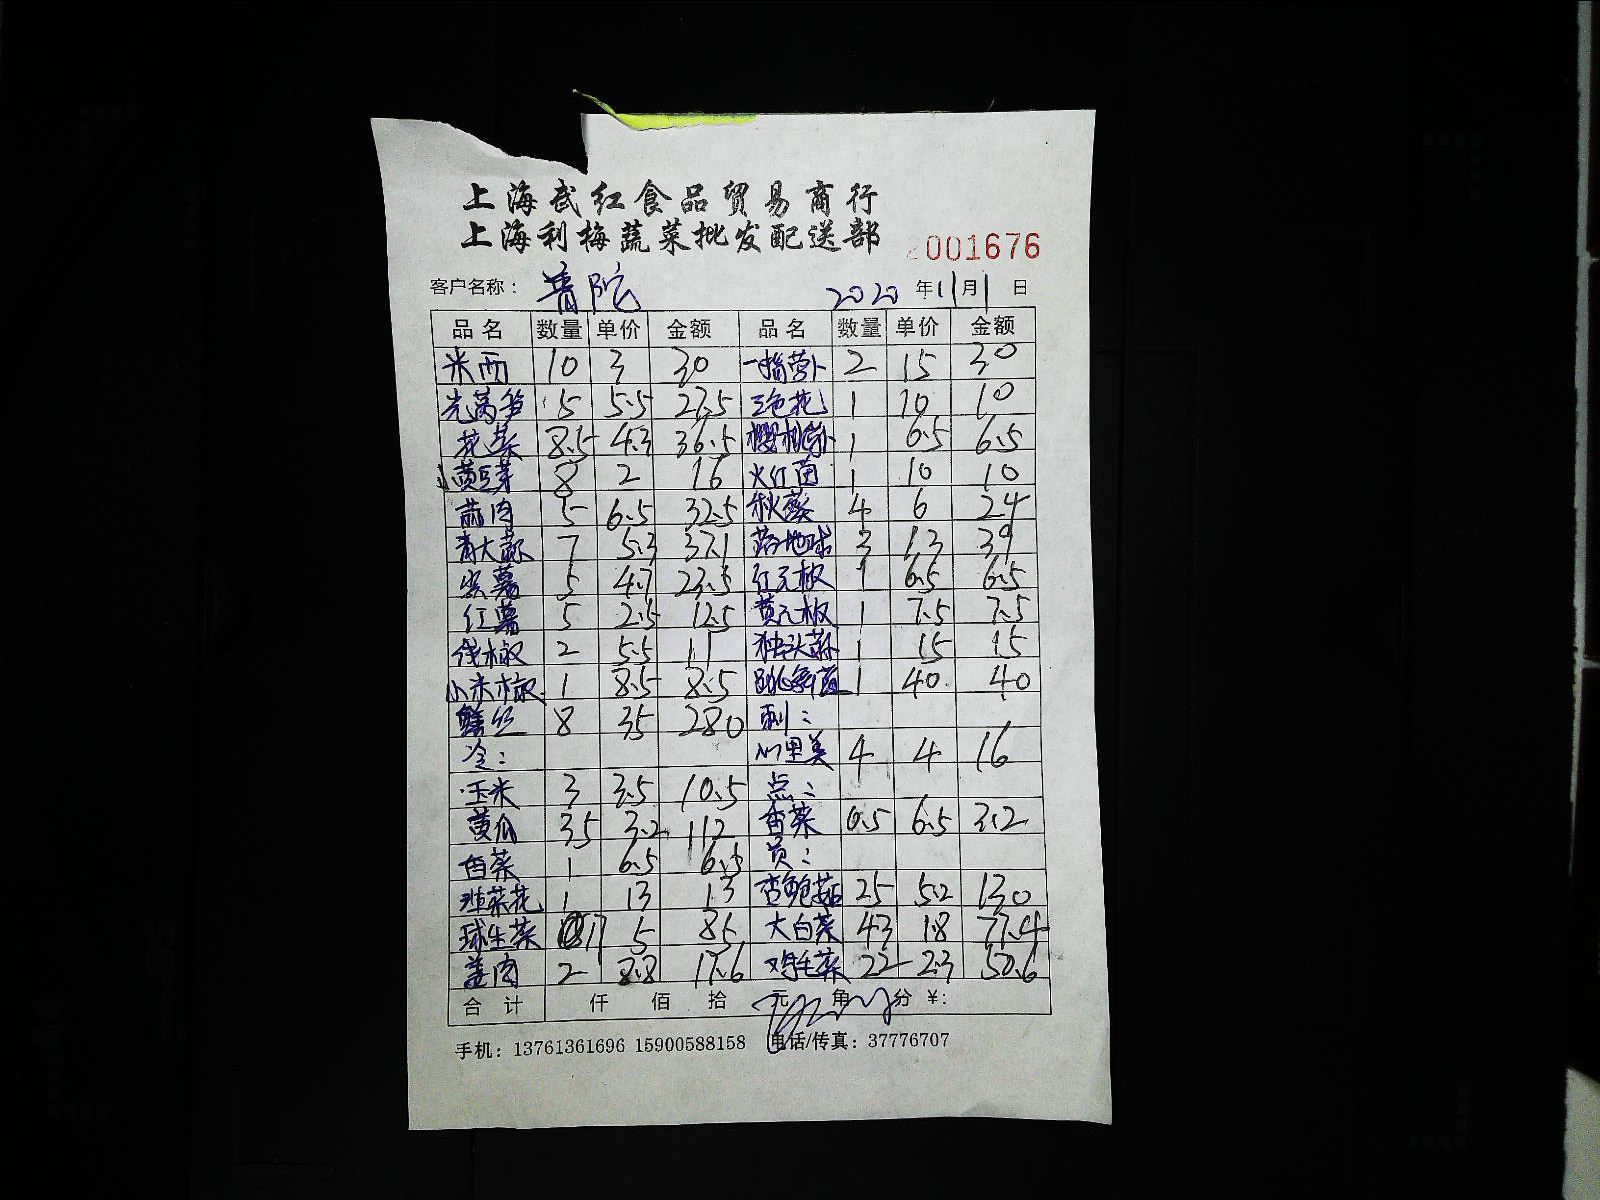 上海武红食品贸易商行
上海利梅蔬菜批发配送部
001676
客户名称： 普陀 2020 年 11 月 1 日
品名 数量 单价 金额 品名 数量 单价 金额
米西 10 3 30 15 30 2
光莴笋 5 5.5 27.5 三色花 1 10 10
花菜 8.5 4.3 36.5 樱桃 1 6.5 6.5
黄豆芽 8 2 16 火红 1 10 10
蒜肉 5 6.5 32.5 秋葵 4 6 24
青大蒜 7 5.3 37.1 地球 3 13 39
紫薯 5 4.7 23.5 红元椒 1 6.5 6.5
红薯 5 2.5 12.5 黄元椒 1 7.5 7.5
线椒 2 5.5 11 独头蒜 1 15 15
小米椒 1 8.5 8.5 1 40 40
丝 8 35 280 刺：
冷： 心里美 4 4 16
玉米 3 3.5 10.5 点：
黄瓜 35 3.2 112 香菜 0.5 6.5 3.2
香菜 1 6.5 6.5 员：
菜花 1 13 13 杏鲍菇 25 5.2 130
球生菜 17 5 85 大白菜 43 1.8 77.4
姜肉 2 8.8 17.6 鸡毛菜 22 2.3 50.6
合计 仟 佰 拾 元 角 分 ¥：
手机：13761361696 15900588158 电话/传真：37776707